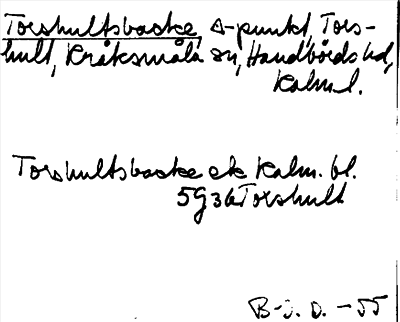 Torshultsbacke, Δ-punkt, Tors-
hult, Kråksmåla sn, Handbörds hd,
Kalm. l.
Torshultsbacke ek Kalm. bl.
5G3b Torshult
B-J. O. -55